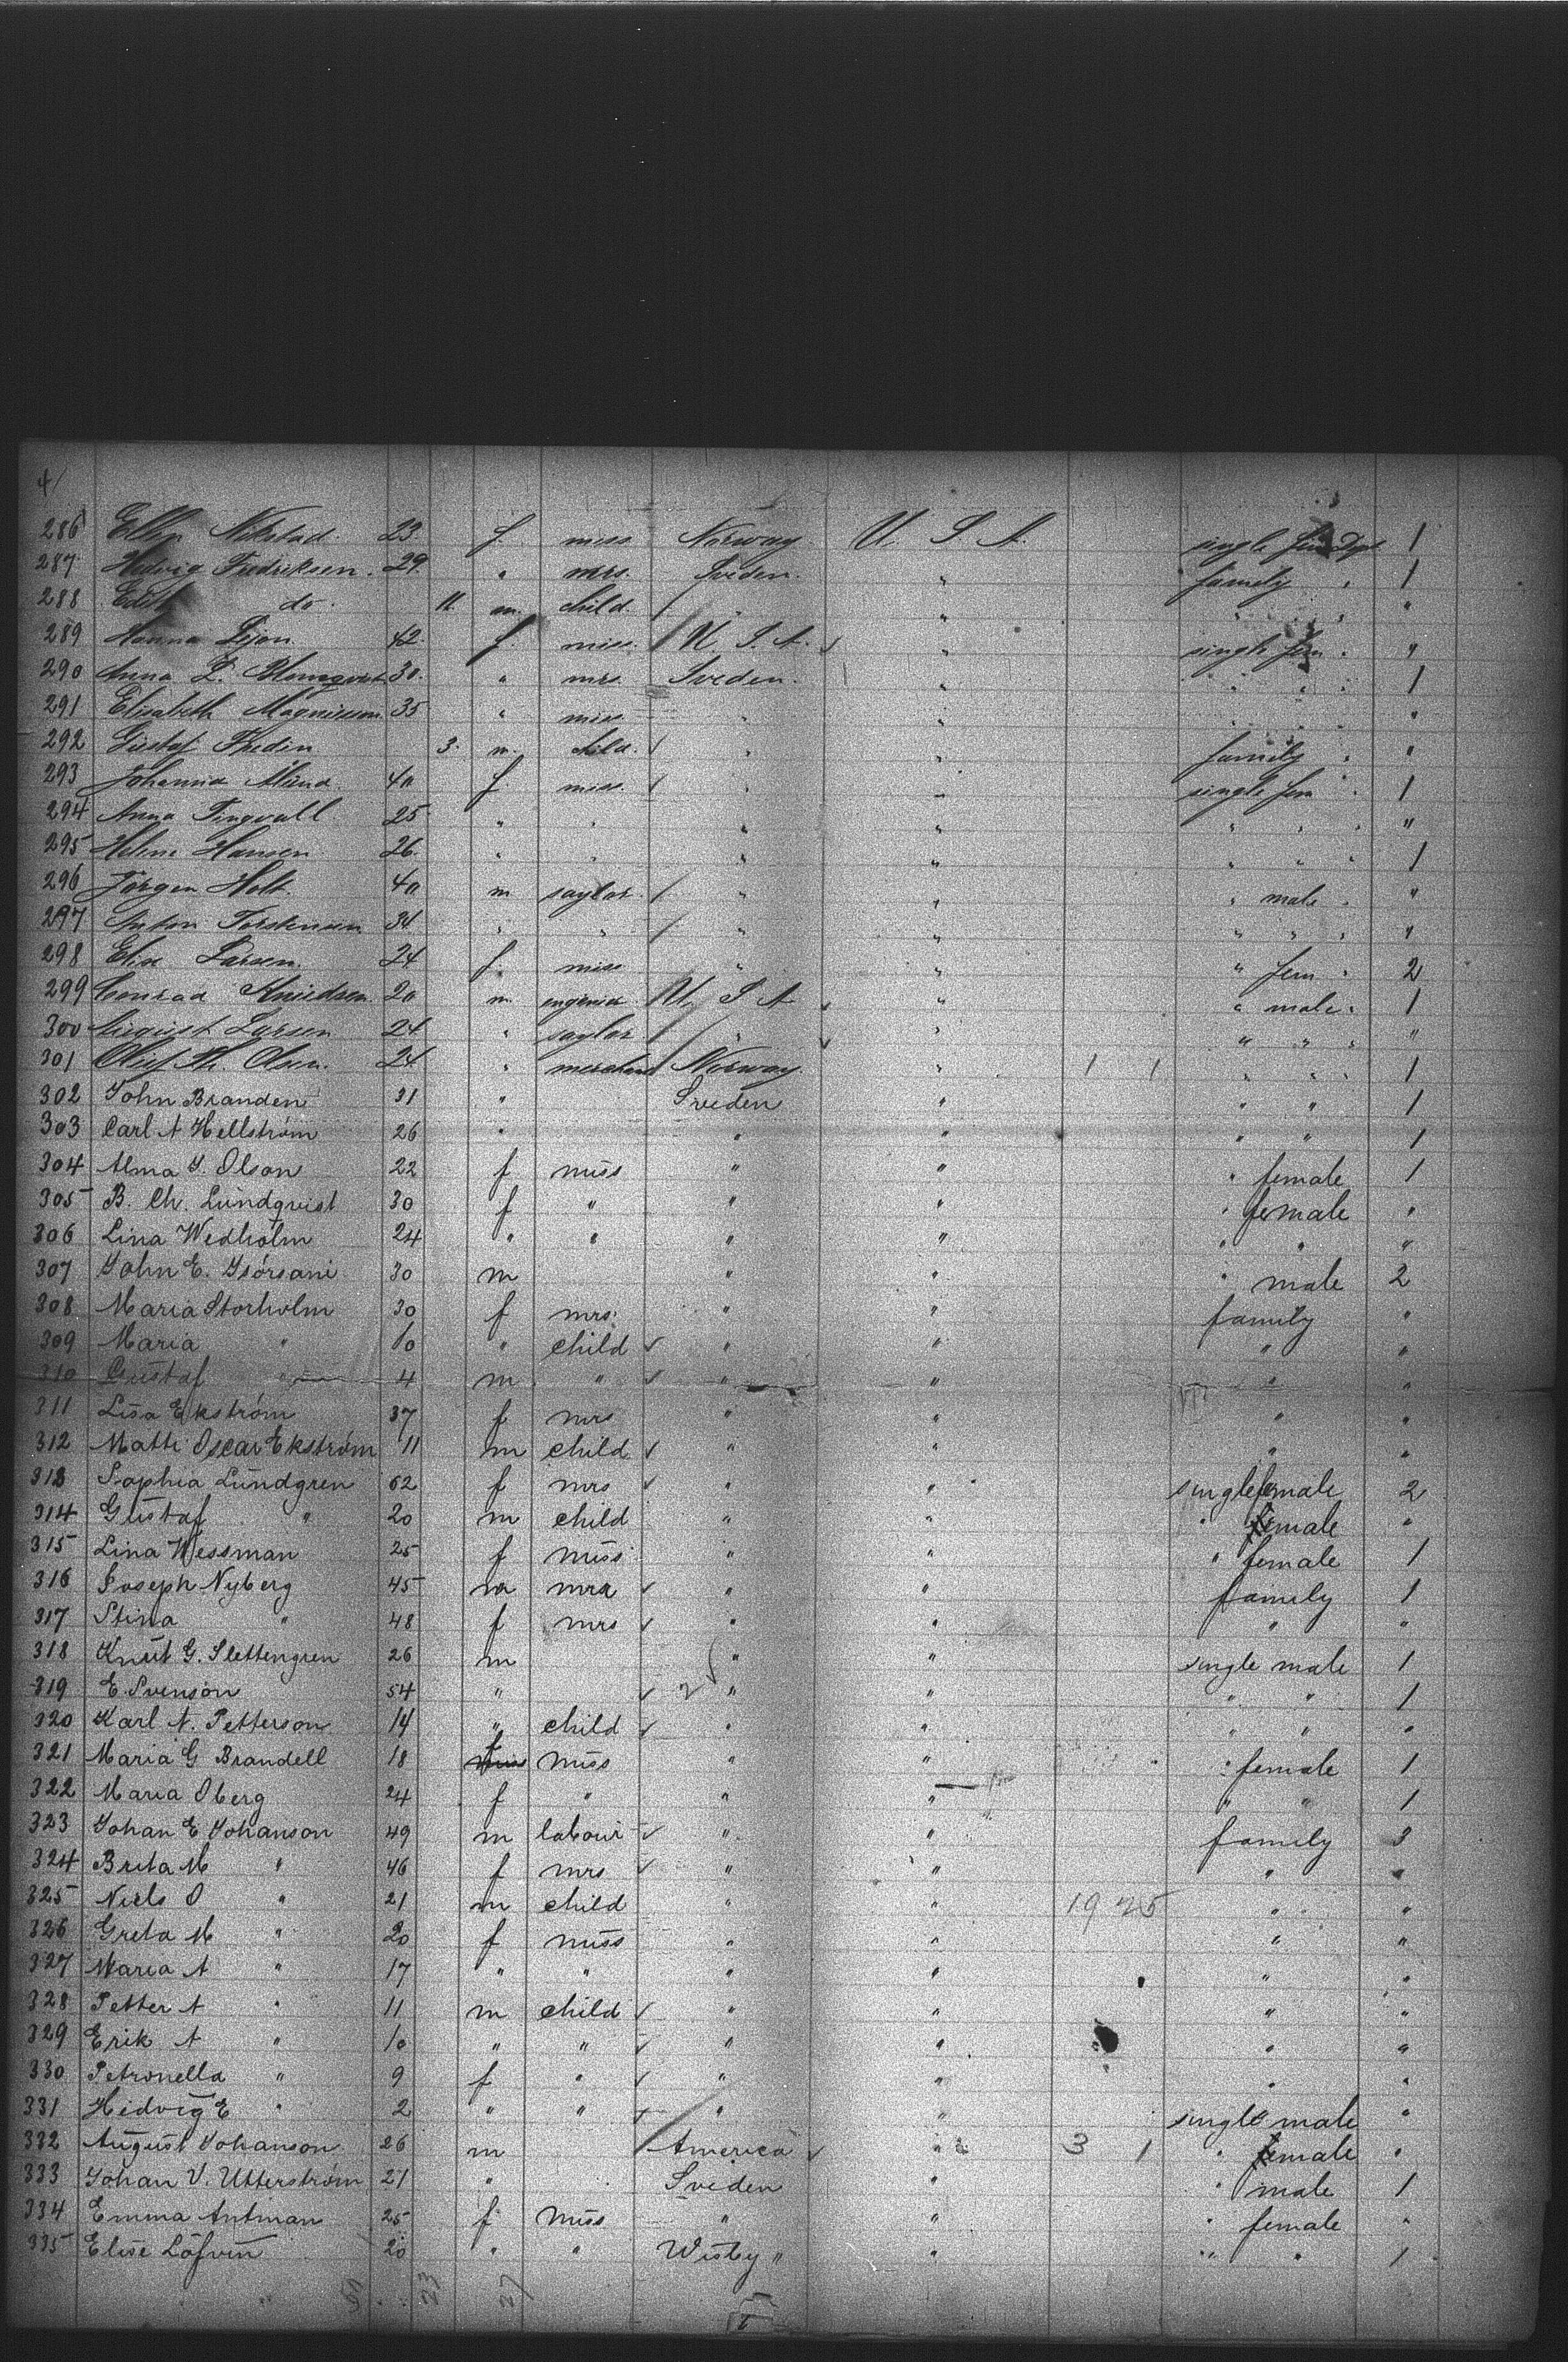 4/
286 Ellen Nikstad. 23. f. miss Norway U. S. A. single fem Dept 1
287 Hedvig Fredriksen. 29. " mrs. Sveden. " family " 1
288 Edith do. 11. m. child. / " " " " "
289 Hanna 42. f. miss. / U. S. A. " single fem. "
290 Anna L. Blomqvist 30. " mrs. Sveden. " " " " 1
291 Elisabeth Magnisson 35 " miss " " " " "
292 Gustaf Thedin 3. m. child. / " " family " "
293 Johanna 40 f. miss. / " " single fem " 1
294 Anna Tingvall 25 " " " " " " " "
295 Helene Hansen 26. " " " " " " " 1
296 Jörgen Holt. 40 m saylor. / " " " male " "
297 Anton Torstensen 34. " " / " " " " " "
298 Elise Larsen. 24. f. miss " " " fem " 2
299 Conrad Knudsen 20 m. / U. S. A. " " male " 1
300 August Larsen 24. " saylor. / " " " " " "
301 Oluf Olsen. 24. " merchand Norway. " 1 1 " " " 1
302 John Branden 31 " Sveden " " " 1
303 Carl A Hellström 26 " " " " " 1
304 Alma J. Olson 22 f miss " " " female 1
305 B. Ch. Lundqvist 30 f " " " " female "
306 Lina Wedholm 24 " " " " " " "
307 John E. 30 m " " " male 2
308 Maria Storholm 30 f mrs. " " family "
309 Maria " 10 " child ✓ " " " "
310 Gustaf " 4 m " ✓ " " " "
311 Lisa Ekström 37 f mrs " " " "
312 Matti Oscar Ekström 11 m child ✓ " " " "
313 Sophia Lundgren 62 f mrs ✓ " " single female 2
314 Gustaf " 20 m child " " " female "
315 Lina Wessman 25 f miss " " " female 1
316 Joseph Nyberg 45 m mrs ✓ " " family 1
317 Stina " 48 f mrs ✓ " " " "
318 Knut G. Slettengren 26 m " " single male 1
319 E. Svenson 54 " ✓ 2 " " " " 1
320 Karl A. Petterson 14 " child ✓ " " " " "
321 Maria G Brandell 18 f miss " " " female 1
322 Maria Oberg 24 f " " " " " 1
323 Johan E Johanson 49 m labour ✓ " " family 3
324 Brita M " 46 f mrs ✓ " " " "
325 Niels O " 21 m child " " 19 25 " "
326 Greta M " 20 f miss " " " "
327 Maria A " 17 " " " " " "
328 Petter A " 11 m child ✓ " " " "
329 Erik A " 10 " " ✓ " " " "
330 Petronella " 9 f " ✓ " " " "
331 Hedvig E " 2 " " ✓ " " single male "
332 August Johanson 26 m America ✓ " 3 1 " female "
333 Johan V. Utterström 21 " Sveden " " male 1
334 Emma Antman 25 f miss " " " female "
335 Elise Löfven 20 " " Wisby " " " " 1
23 27